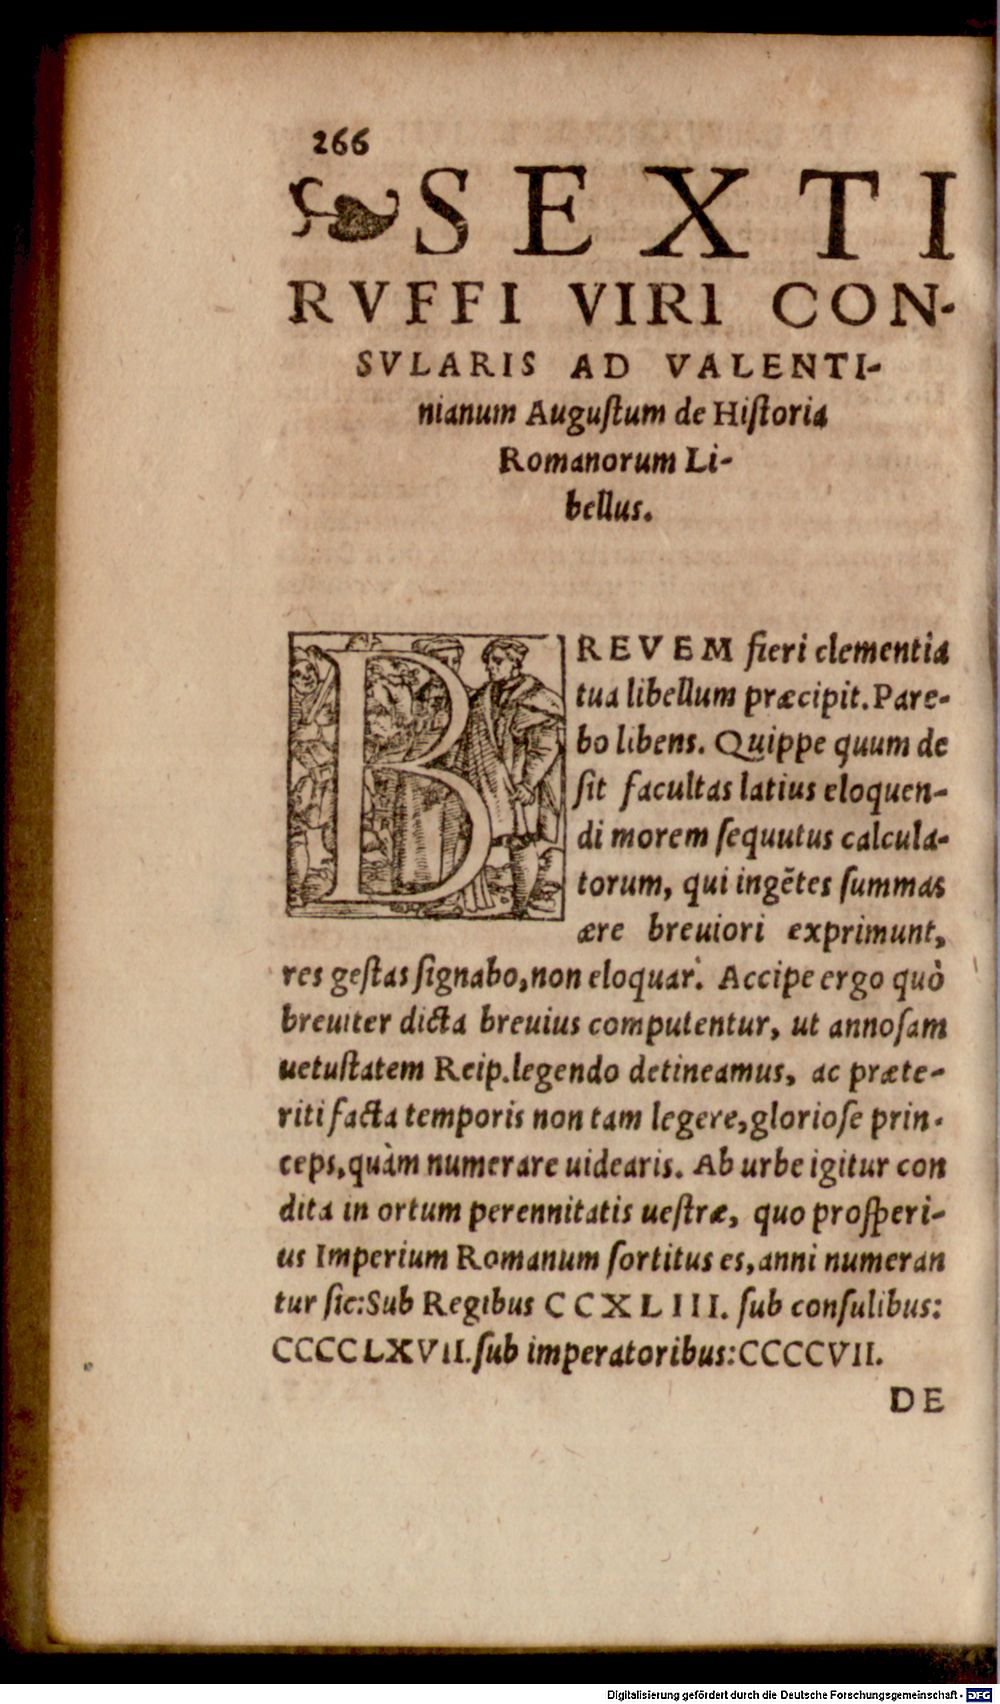 266
SEXTI
RVFFI VIRI CON-
SVLARIS AD VALENTI-
nianum Auguſtum de Hiſtoria
Romanorum Li-
bellus.
BREVEM fieri clementia
tua libellum præcipit. Pare-
bo libens. Quippe quum de
ſit facultas latius eloquen-
di morem ſequutus calcula-
torum, qui ingẽtes ſummas
ære breuiori exprimunt,
res geſtas ſignabo, non eloquar. Accipe ergo quò
breuiter dicta breuius computentur, ut annoſam
uetuſtatem Reip. legendo detineamus, ac præte-
riti facta temporis non tam legere, glorioſe prin-
ceps, quàm numerare uidearis. Ab urbe igitur con
dita in ortum perennitatis ueſtræ, quo proſperi-
us Imperium Romanum ſortitus es, anni numeran
tur ſic: Sub Regibus CCXLIII. ſub conſulibus:
CCCCLXVII. ſub imperatoribus: CCCCVII.
DE
Digitalisierung gefördert durch die Deutsche Forschungsgemeinschaft - DFG